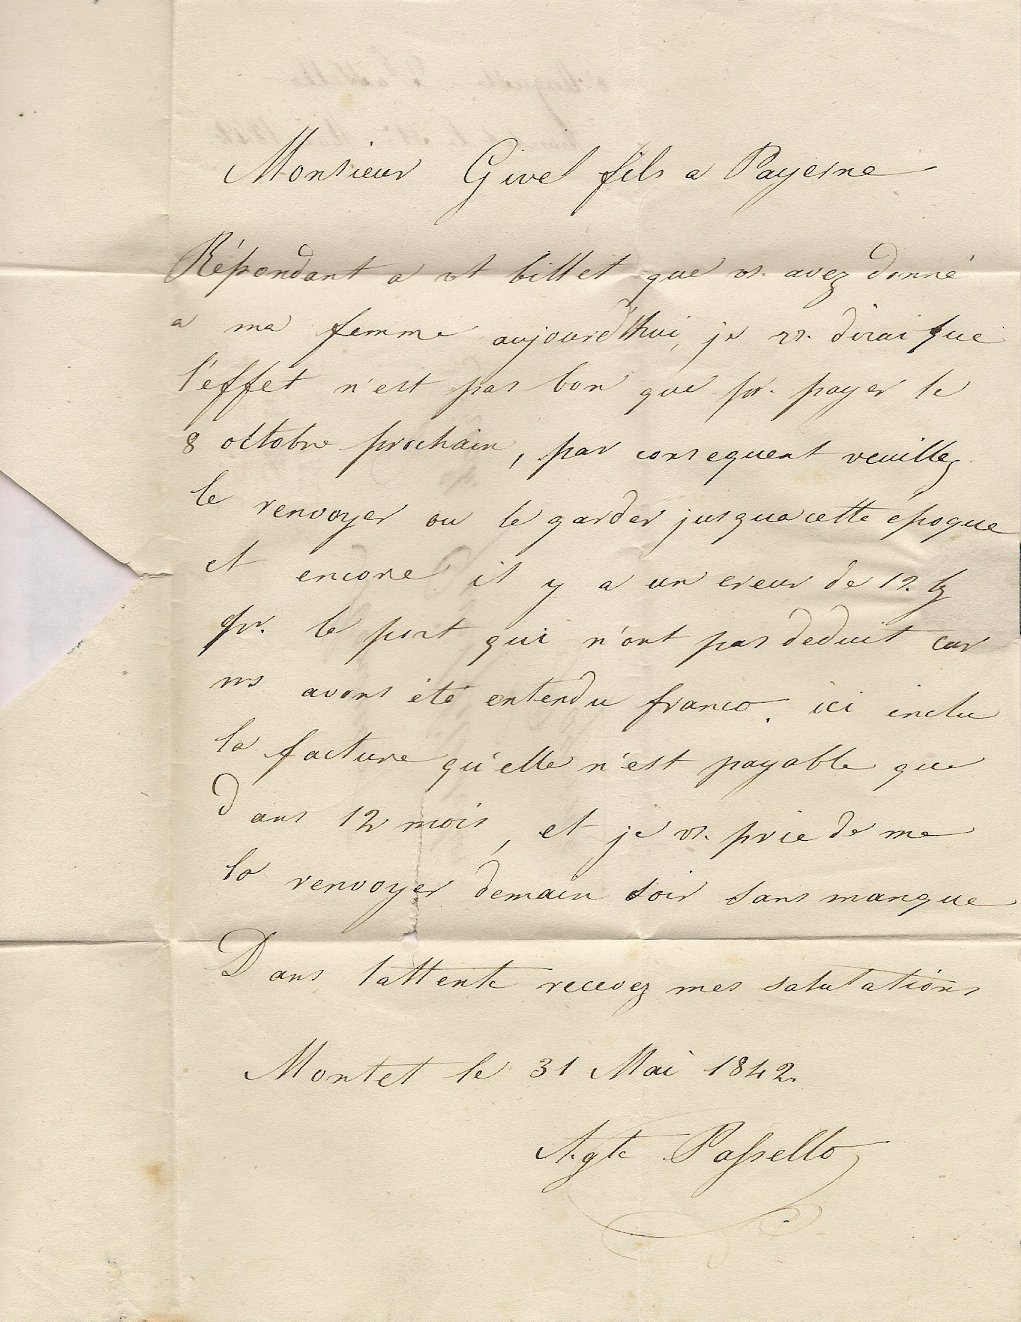 Monsieur Givel fils a Payerne
Répondant a vt billet que vs. avez donné
a ma femme aujourd'hui, je vs. dirai que
l'effet n'est pas bon que pr. payer le
8 octobre prochain, par consequent veuillez
le renvoyer ou le garder jusqua cette époque
et encore il y a un ereur de 12.
pr. le port qui n'ont pas deduit car
ns avons été entendu franco. ici inclu
la facture qu'elle n'est payable que
dans 12 mois, et je vs. prie de me
la renvoyer demain soir sans manque
Dans lattente recevez mes salutations
Montet le 31 Mai 1842.
Agte Passello